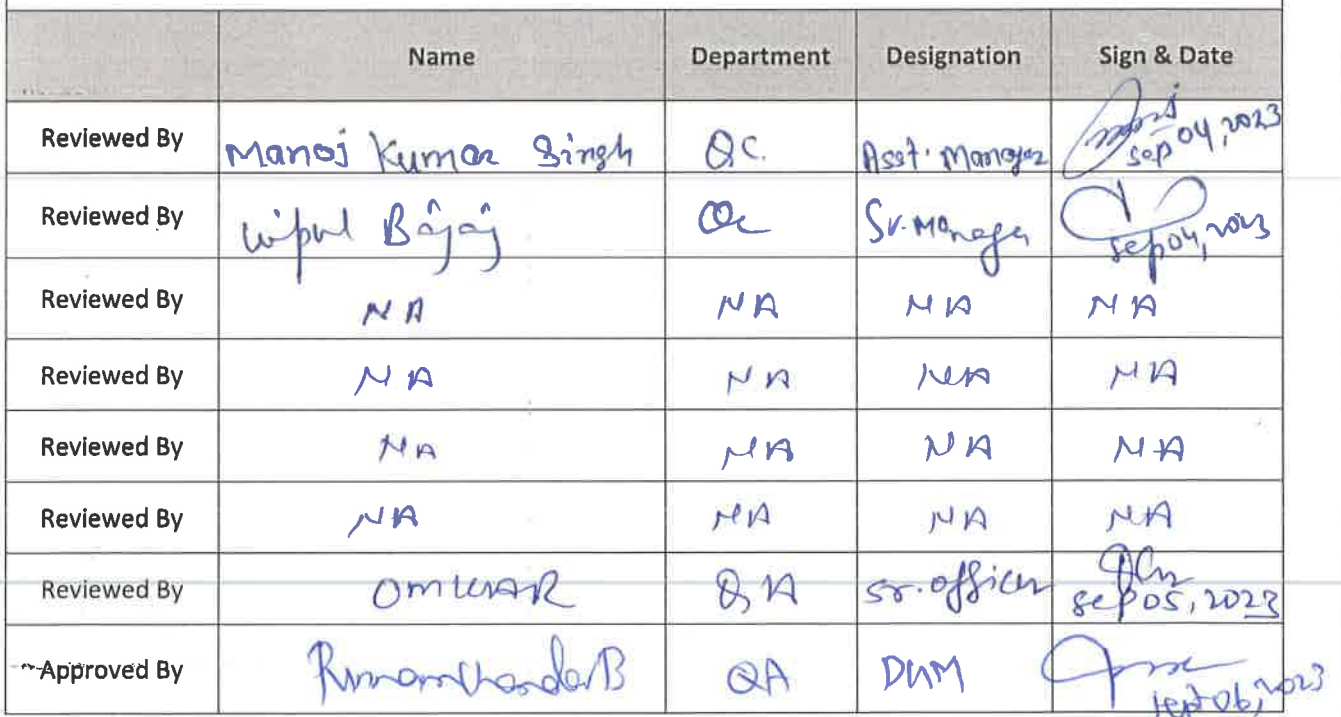 Name Department Designation Sign & Date
Reviewed By Manoj Kumar Singh QC. Asst. Manager Sep 04, 2023
Reviewed By Vipul Bajaj QC Sr. Manager Sep 04, 2023
Reviewed By NA NA NA NA
Reviewed By NA NA NA NA
Reviewed By NA NA NA NA
Reviewed By NA NA NA NA
Reviewed By OMKAR QA Sr. officer Sep 05, 2023
Approved By QA DGM Sept 06, 2023